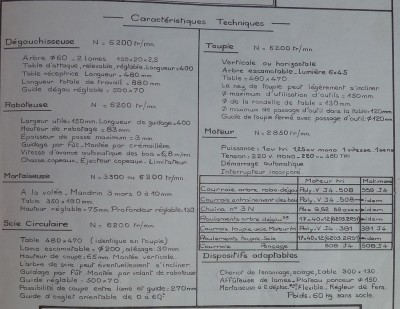 Caractéristiques Techniques
Dégauchisseuse N = 6200 tr/mn
Arbre Ø60 _ 2 lames 150x20x2,5
Table d'attaque, relevable, réglable. Longueur = 400
Table réceptrice Longueur = 480mm
Longueur totale de travail = 880mm
Guide dégau réglable : 500x70
Raboteuse N = 6200 tr/mn
Largeur utile : 150mm. Longueur de guidage : 400
Hauteur de rabotage : 83mm
Epaisseur de passe maximum : 3mm
Guidage par fût Montée par crémaillère
Vitesse d'avance automatique des bois = 6,8m/mn
Chasse copeaux. Ejecteur copeaux. Limitateur
Mortaiseuse N = 3300 ou 6200 tr/mn
A la volée, Mandrin 3 mors 0 à 10mm
Table 350x190mm
Hauteur réglable = 75mm Profondeur réglable
Scie Circulaire N = 6200 tr/mn
Table 480x470 (identique en toupie)
Lame escamotable = Ø200, alésage 30mm
Hauteur de coupe : 65mm Montée verticale
L'arbre de scie peut éventuellement s'incliner
Guidage par fût Montée par volant de raboteuse
Guide réglable : 500x70.
Possibilité de coupe entre lame et guide : 270mm
Guide d'onglet orientable de 0 à 60°
Toupie N = 6200 tr/mn
Verticale ou horizontale
Arbre escamotable. Lumière 6x45
Table = 480x470
Le nez de toupie peut légèrement s'incliner
Ø maximum d'utilisation d'outils = 150mm
Ø de la rondelle de table = 130mm
Ø maximum de passage d'outil dans la table : 120mm
Guide de toupie fermé avec passage d'outil : Ø120mm
Moteur N = 2850 tr/mn
Puissance : 1cv tri 1,25cv mono 1 vitesse 1 sens
Tension : 220 V mono _ 220 ou 380 Tri
Démarrage automatique
Interrupteur incorporé
Moteur tri
Courroie arbre rabo-dégau Poly. V J4 .508 559 J4
idem
Chaîne n° 3 N
idem
Roulements arbre dégau
idem
Courroie toupie sous Moteur Poly. V J4 . 381 381 J4
Roulements toupie. Scie
idem
Courroie 508 J4 508 J4
Dispositifs adaptables
Chariot de tenonnage, sciage, table 300x130
Affûteuse de lames = Plateau ponceur Ø 150
Flexible, Régleur de fers.
Poids : 60 kg sans socle.